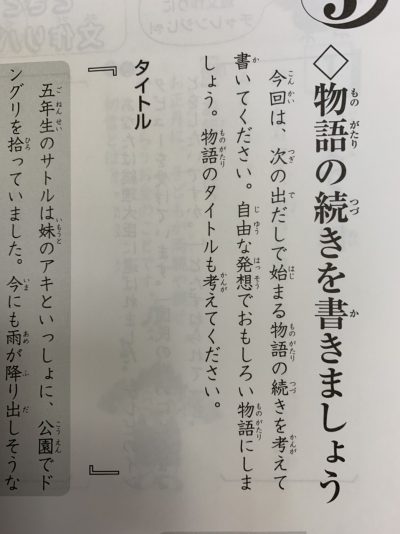 ◇物語の続きを書きましょう
今回は、次の出だしで始まる物語の続きを考えて
書いてください。自由な発想でおもしろい物語にしま
しょう。物語のタイトルも考えてください。
タイトル
『　　　』
五年生のサトルは妹のアキといっしょに、公園でド
ングリを拾っていました。今にも雨が降り出しそうな